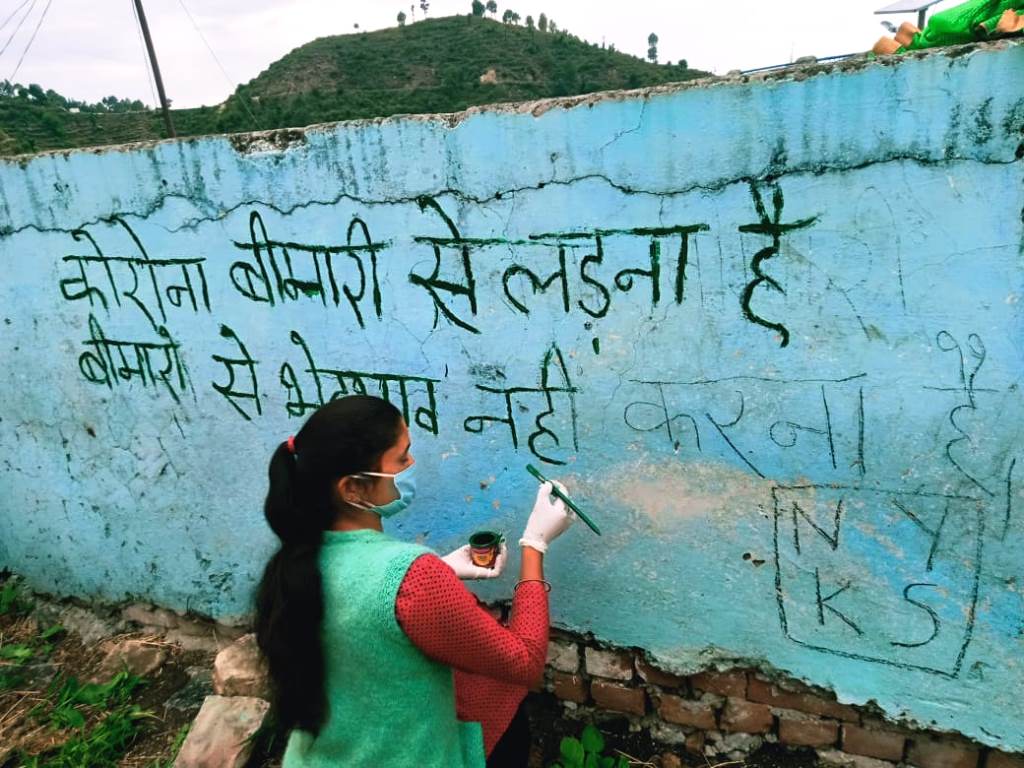 कोरोना बीमारी से लड़ना है
बीमारी से भेदभाव नहीं करना है।
N Y
K S